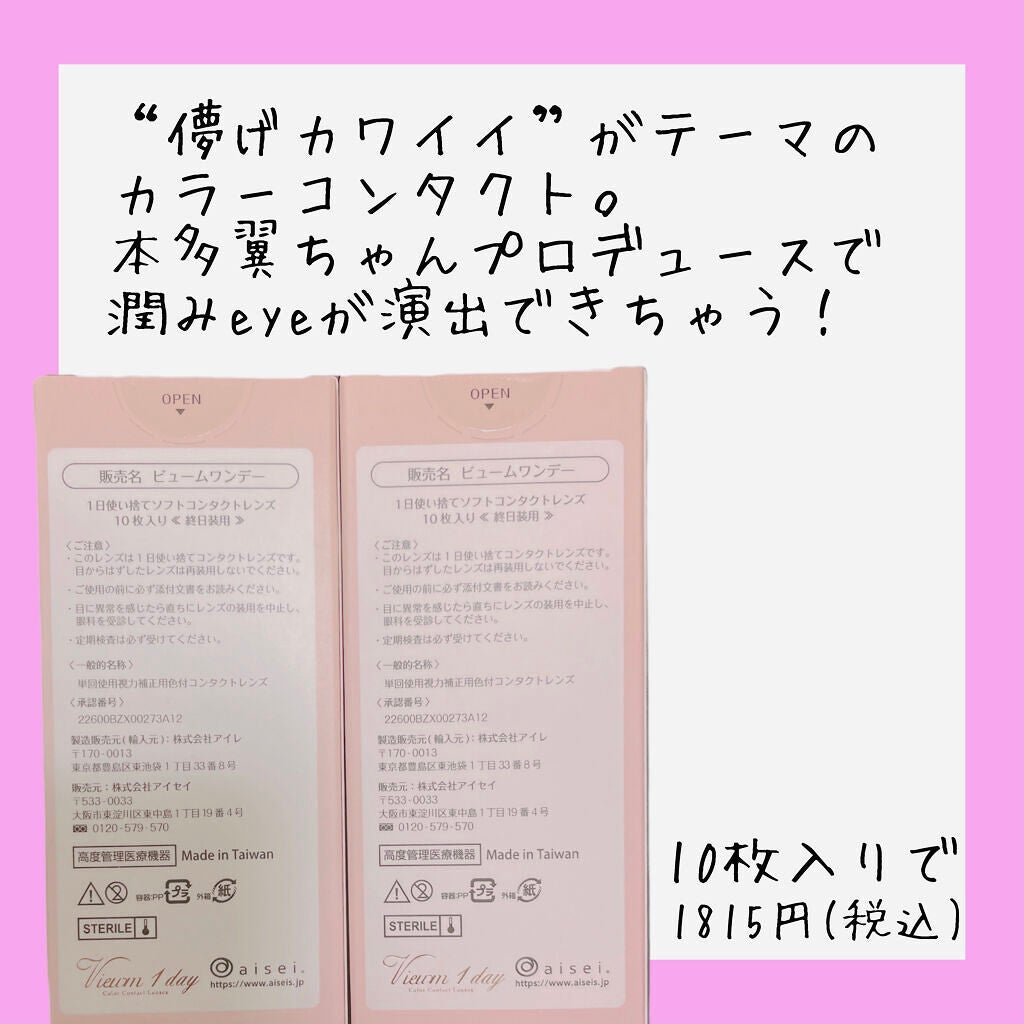 “儚げカワイイ”がテーマの
カラーコンタクト。
本多翼ちゃんプロデュースで
潤みeyeが演出できちゃう！
OPEN
販売名 ビュームワンデー
1日使い捨てソフトコンタクトレンズ
10枚入り≪終日装用≫
〈ご注意〉
・このレンズは1日使い捨てコンタクトレンズです。
目からはずしたレンズは再装用しないでください。
・ご使用の前に必ず添付文書をお読みください。
・目に異常を感じたら直ちにレンズの装用を中止し、
眼科を受診してください。
・定期検査は必ず受けてください。
〈一般的名称〉
単回使用視力補正用色付コンタクトレンズ
〈承認番号〉
22600BZX00273A12
製造販売元(輸入元)：株式会社アイレ
〒170-0013
東京都豊島区東池袋1丁目33番8号
販売元：株式会社アイセイ
〒533-0033
大阪市東淀川区東中島1丁目19番4号
0120-579-570
高度管理医療機器 Made in Taiwan
容器:PP プラ 外箱 紙
STERILE
Viewm 1 day
Color Contact Lenses
aisei®
https://www.aiseis.jp
OPEN
販売名 ビュームワンデー
1日使い捨てソフトコンタクトレンズ
10枚入り≪終日装用≫
〈ご注意〉
・このレンズは1日使い捨てコンタクトレンズです。
目からはずしたレンズは再装用しないでください。
・ご使用の前に必ず添付文書をお読みください。
・目に異常を感じたら直ちにレンズの装用を中止し、
眼科を受診してください。
・定期検査は必ず受けてください。
〈一般的名称〉
単回使用視力補正用色付コンタクトレンズ
〈承認番号〉
22600BZX00273A12
製造販売元(輸入元)：株式会社アイレ
〒170-0013
東京都豊島区東池袋1丁目33番8号
販売元：株式会社アイセイ
〒533-0033
大阪市東淀川区東中島1丁目19番4号
0120-579-570
高度管理医療機器 Made in Taiwan
容器:PP プラ 外箱 紙
STERILE
Viewm 1 day
Color Contact Lenses
aisei®
https://www.aiseis.jp
10枚入りで
1815円(税込)